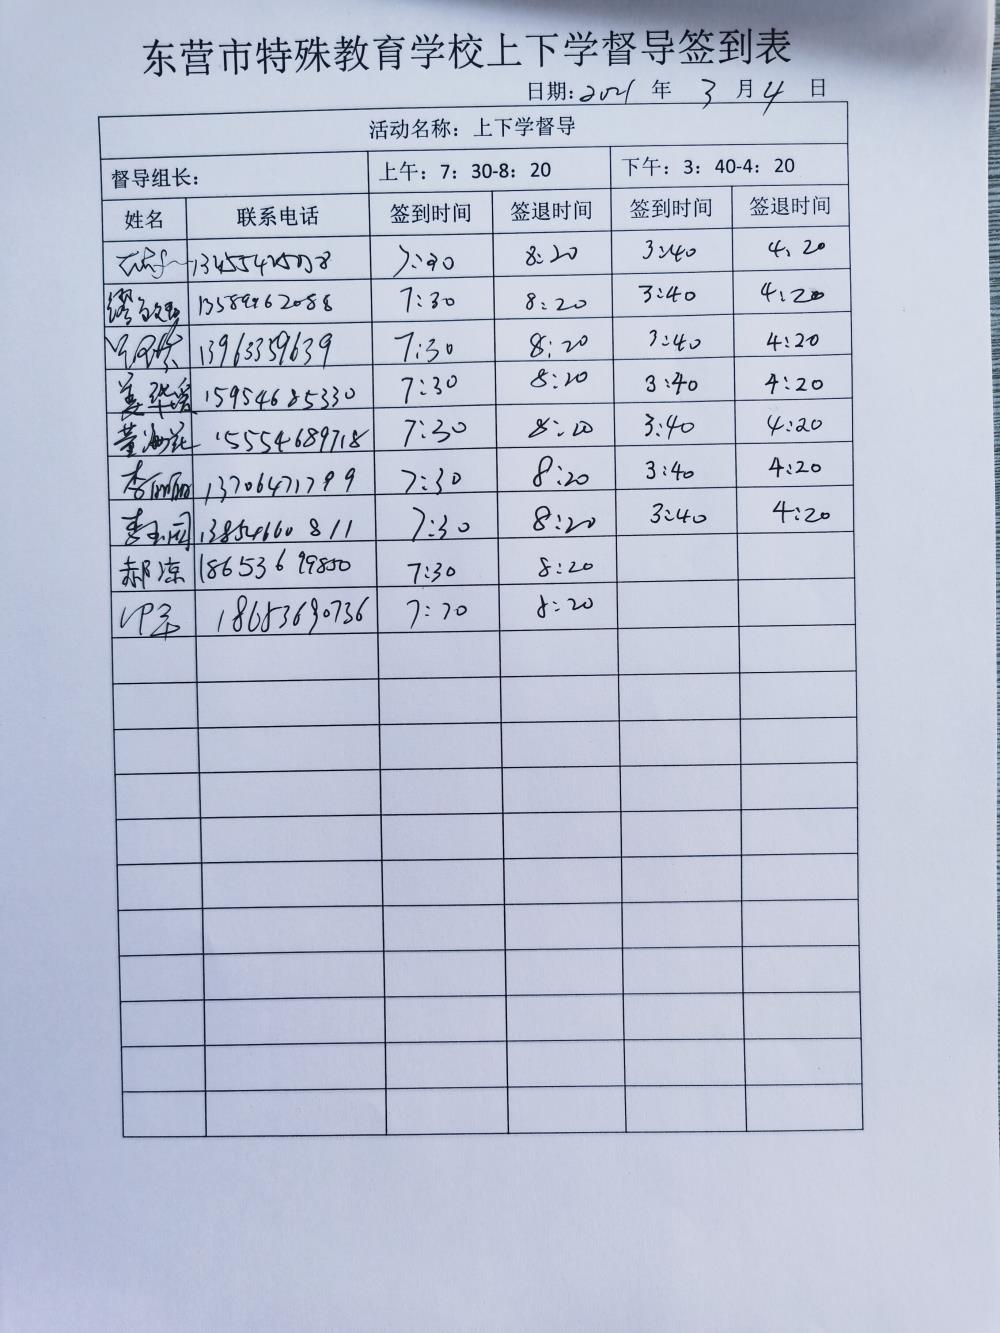 东营市特殊教育学校上下学督导签到表
日期: 2021 年 3 月 4 日
活动名称：上下学督导
督导组长： 上午：7：30-8：20 下午：3：40-4：20
姓名 联系电话 签到时间 签退时间 签到时间 签退时间
7:30 8:20 3:40 4:20
13589962088 7:30 8:20 3:40 4:20
13963359639 7:30 8:20 3:40 4:20
姜华瑶 15954685330 7:30 8:20 3:40 4:20
董海花 15554689718 7:30 8:20 3:40 4:20
李丽丽 13706471799 7:30 8:20 3:40 4:20
李玉园 13854660811 7:30 8:20 3:40 4:20
郝凉 18653699850 7:30 8:20
18653690736 7:30 8:20